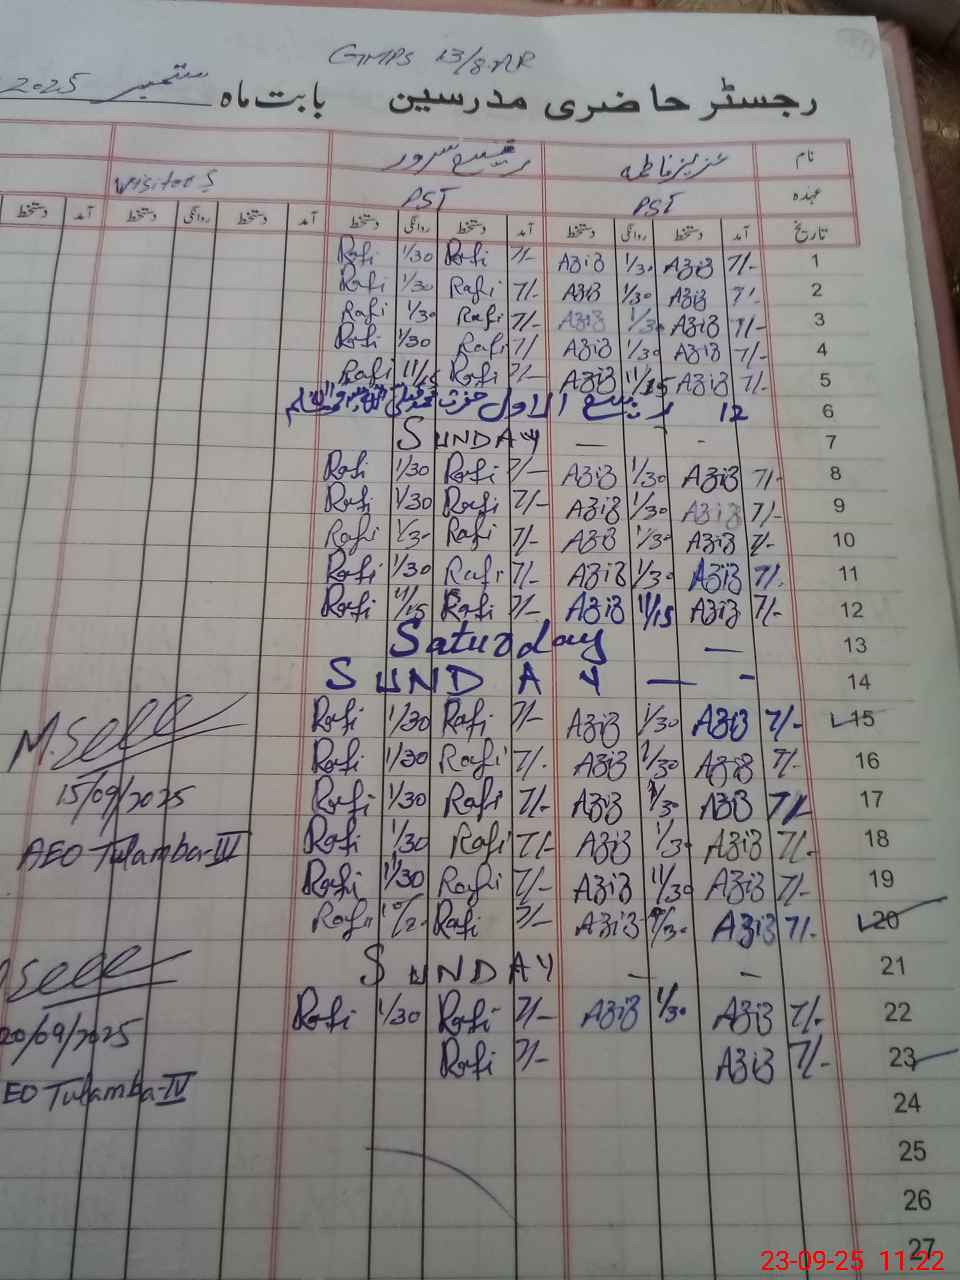 GMPS 13/8.NR
رجسٹر حاضری مدرسین بابت ماہ ستمبر 2025
نام عزیز فاطمہ سرور
عہدہ PST PST Visitors
تاریخ آمد دستخط روانگی دستخط آمد دستخط روانگی دستخط آمد دستخط روانگی دستخط آمد دستخط
Rafi 1/30 Rafi 7/- Aziz 1/30 Aziz 7/- 1
Rafi 1/30 Rafi 7/- Aziz 1/30 Aziz 7/- 2
Rafi 1/30 Rafi 7/- Aziz 1/30 Aziz 7/- 3
Rafi 1/30 Rafi 7/ Aziz 1/30 Aziz 7/- 4
Rafi 11/15 Rafi 7/- Aziz 11/15 Aziz 7/- 5
12 ربیع الاول 6
SUNDAY — - 7
Rafi 1/30 Rafi 7/- Aziz 1/30 Aziz 7/- 8
Rafi 1/30 Rafi 7/- Aziz 1/30 Aziz 7/- 9
Rafi 1/30 Rafi 7/- Aziz 1/30 Aziz 7/- 10
Rafi 1/30 Rafi 7/- Aziz 1/30 Aziz 7/- 11
Rafi 11/15 Rafi 7/- Aziz 11/15 Aziz 7/- 12
Saturday — 13
SUNDAY — - 14
Rafi 1/30 Rafi 7/- Aziz 1/30 Aziz 7/- 15
Rafi 1/30 Rafi 7/- Aziz 1/30 Aziz 7/- 16
15/09/2025 Rafi 1/30 Rafi 7/- Aziz 1/30 Aziz 7/- 17
AEO Tulamba-III Rafi 1/30 Rafi 7/- Aziz 1/30 Aziz 7/- 18
Rafi 11/30 Rafi 7/- Aziz 11/30 Aziz 7/- 19
Rafi Rafi 7/- Aziz Aziz 7/- 20
SUNDAY — - 21
Rafi 1/30 Rafi 7/- Aziz 1/30 Aziz 7/- 22
20/09/2025 Rafi 7/- Aziz 7/- 23
EO Tulamba-IV 24
25
26
27
23-09-25 11:22